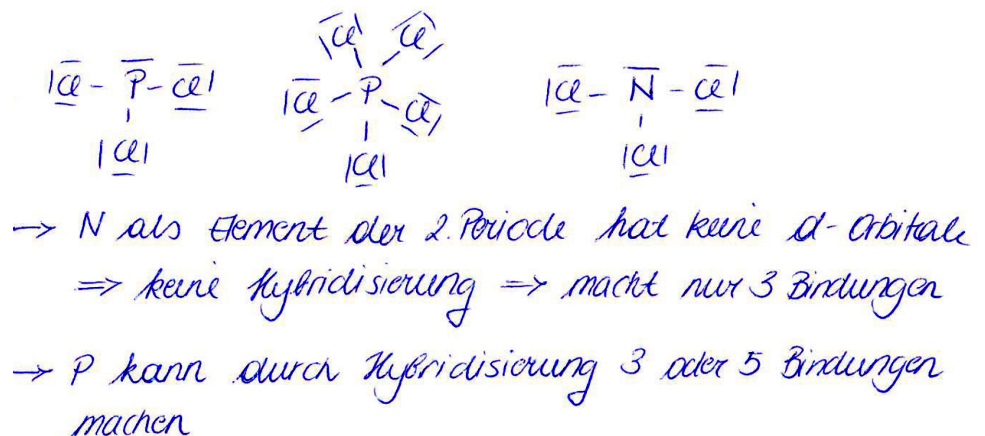 |Cl - P - Cl|
|Cl|
Cl Cl
|Cl - P - Cl|
|Cl|
|Cl - N - Cl|
|Cl|
→ N als Element der 2. Periode hat keine d-Orbitale
⇒ keine Hybridisierung ⇒ macht nur 3 Bindungen
→ P kann durch Hybridisierung 3 oder 5 Bindungen
machen